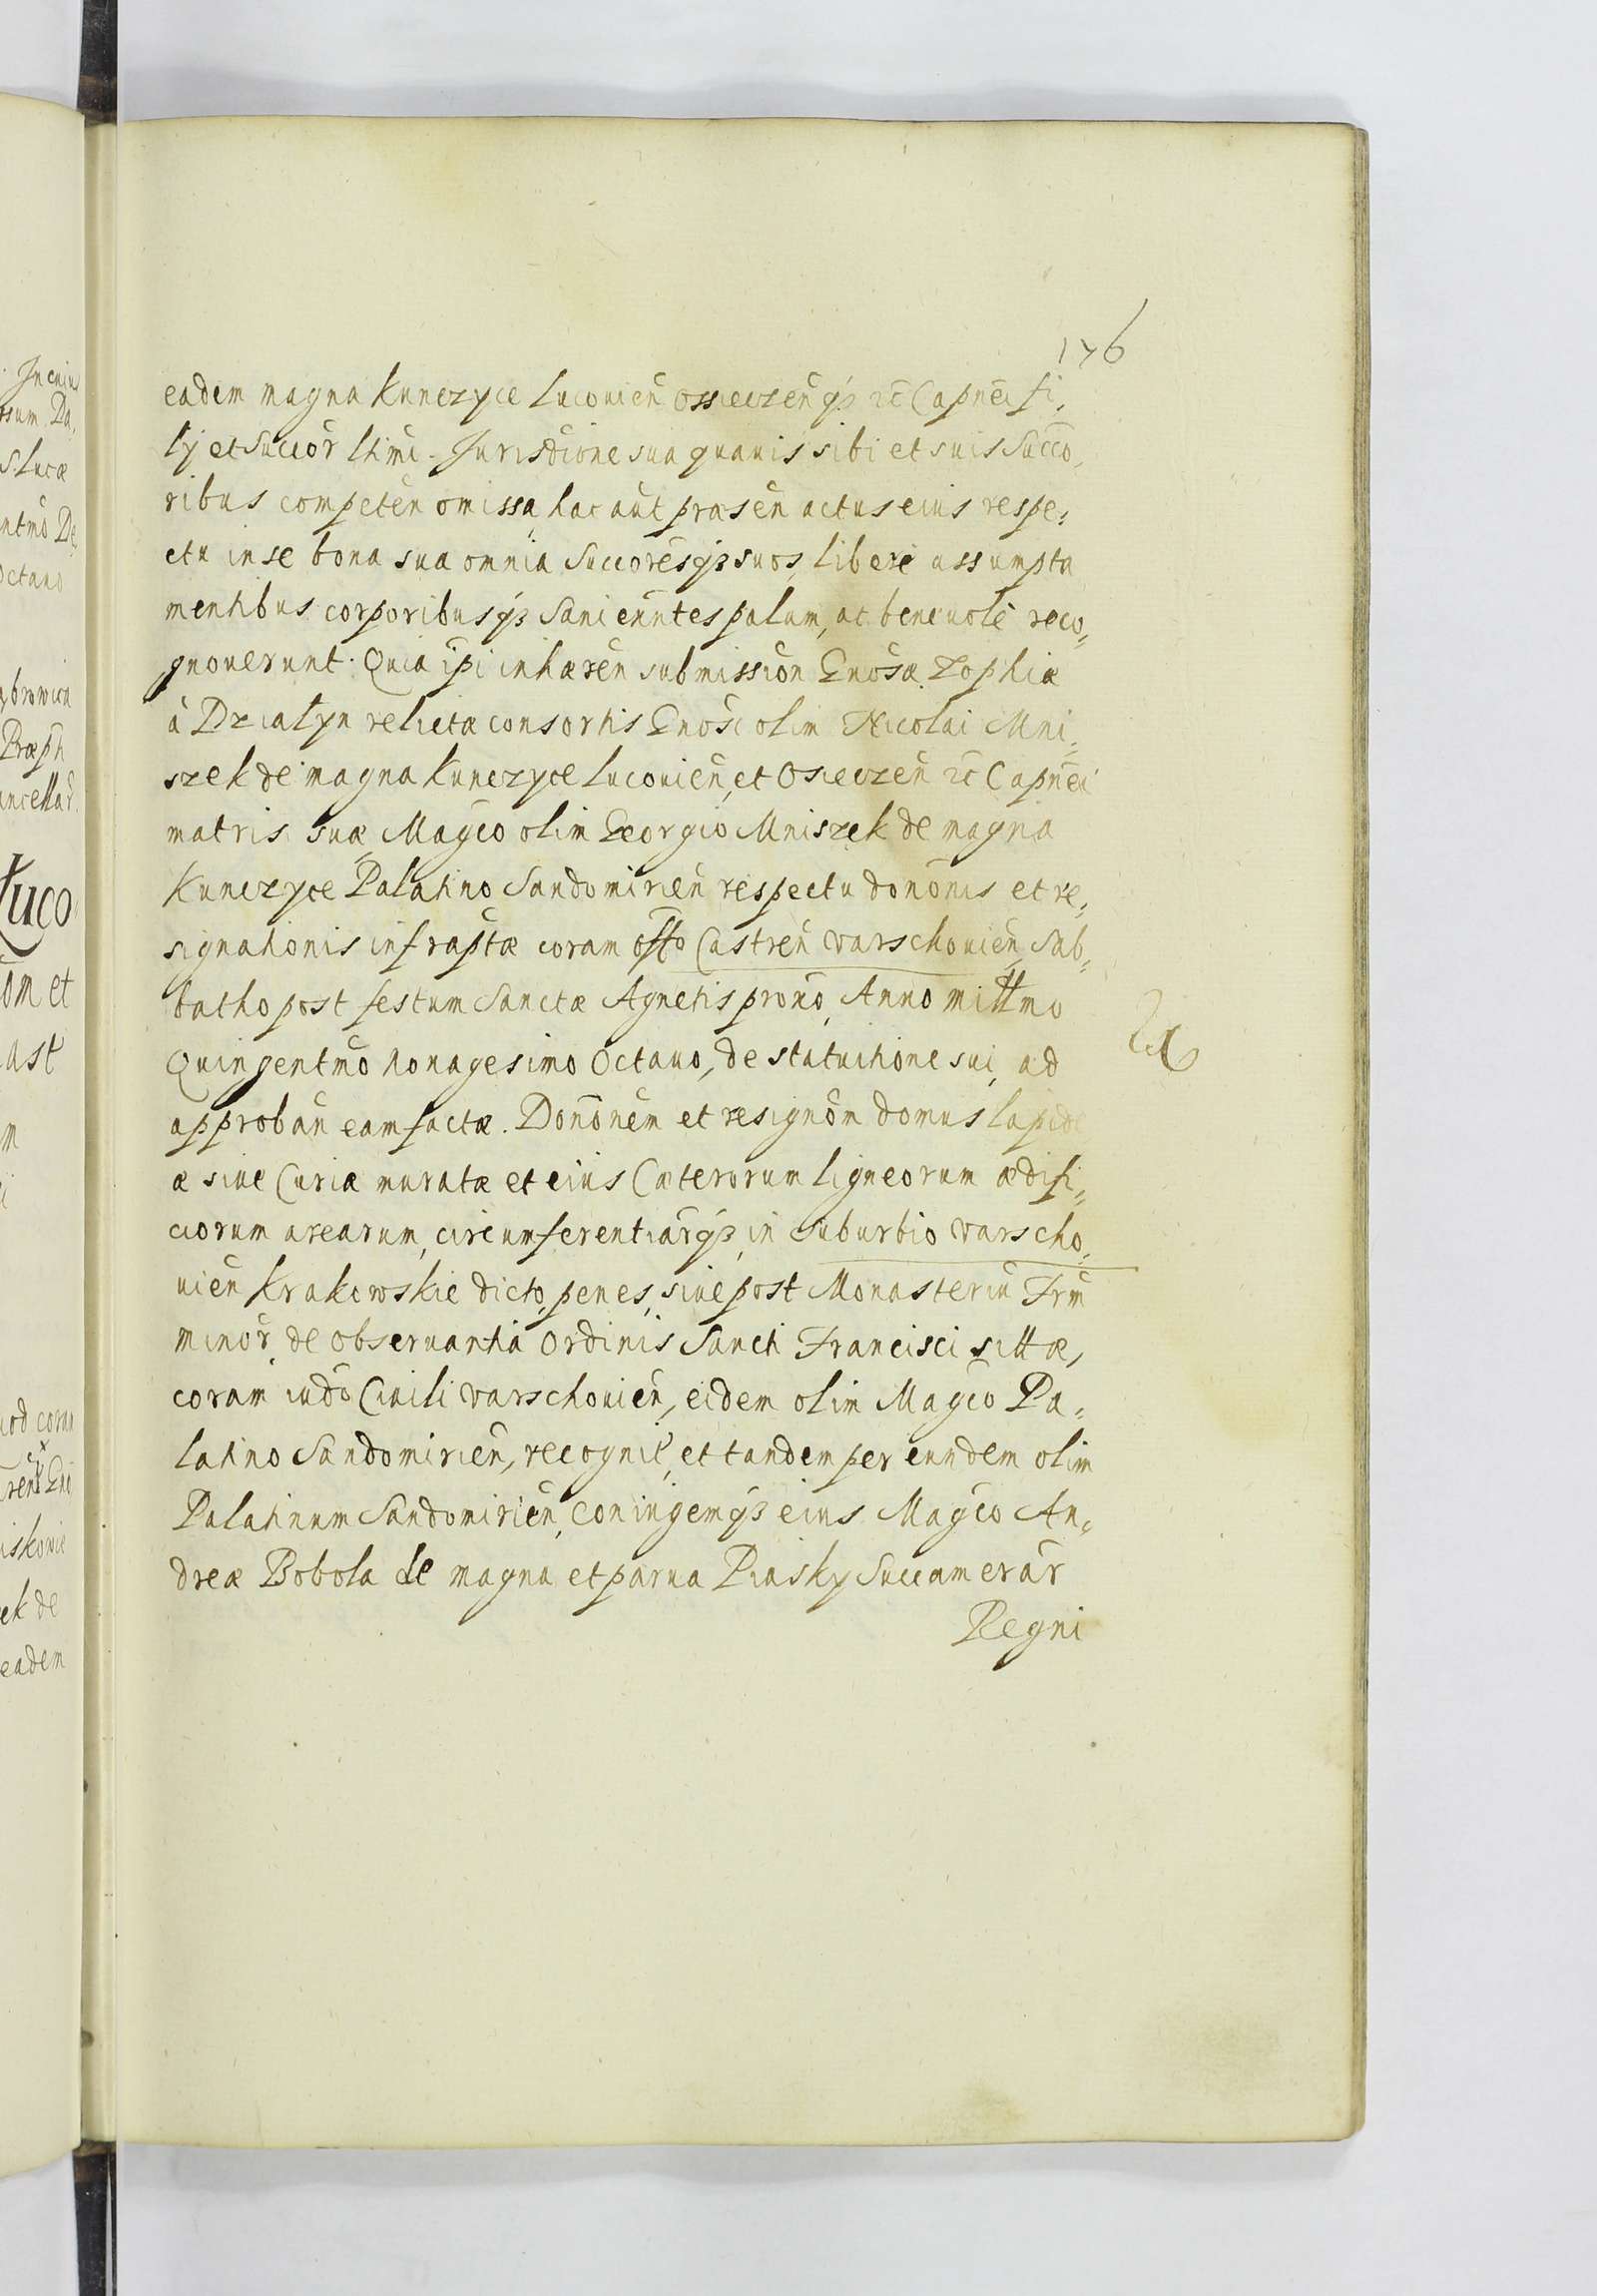 176
eadem magna Kunczyce Lucouien̄ Ossieczen̄ qȝ ac Capnei fi,
lij et Succor̄ ltimi. Jurisdc̄ione sua quauis sibi et suis Succo,
ribus competen̄ omissa, hac aut̄ præsen̄ actus eius respe,
ctu in se bona sua omnia Succoresqȝ suos, liberè assumpta
mentibus corporibusqȝ sani eūntes palam, ac beneuolè reco,
gnouerunt. Quia ip̄i inhæren̄ submission̄ Gnosæ Zophiæ
à Dzialyn relictæ consortis Gnosi olim Nicolai Mni,
szek de magna Kunczyce Lucouien̄, et Osieczen̄ ac Capnei
matris suæ Magco olim Georgio Mniszek de magna
Kunczyce Palatino Sandomirien̄ respectu donōnis et re,
signationis infraptæ coram offo Castren̄ varschouien̄, Sab,
batho post festum Sanctæ Agnetis proxio, Anno millmo
Quingentmo nonagesimo Octauo, de statuitione sui, ad
approban̄ eam factæ. Donōnem et resignōm domus lapide
æ siue Curiæ muratæ et eius Cæterorum ligneorum ædifi,
ciorum arearum, circumferentiar̄qȝ, in suburbio varscho,
uien̄ Krakowskie dicto, penes, siue post Monasteriū Frm̄
minor̄, de obseruantia Ordinis Sancti Francisci sittæ,
coram iudō Ciuili varschouien̄, eidem olim Magco Pa,
latino Sandomirien̄, recognit̄, et tandem per eundem olim
Palatinum Sandomirien̄, Coniugemqȝ eius Magco An,
dreæ Bobola de magna et parua Piasky Succamerar̄
Regni